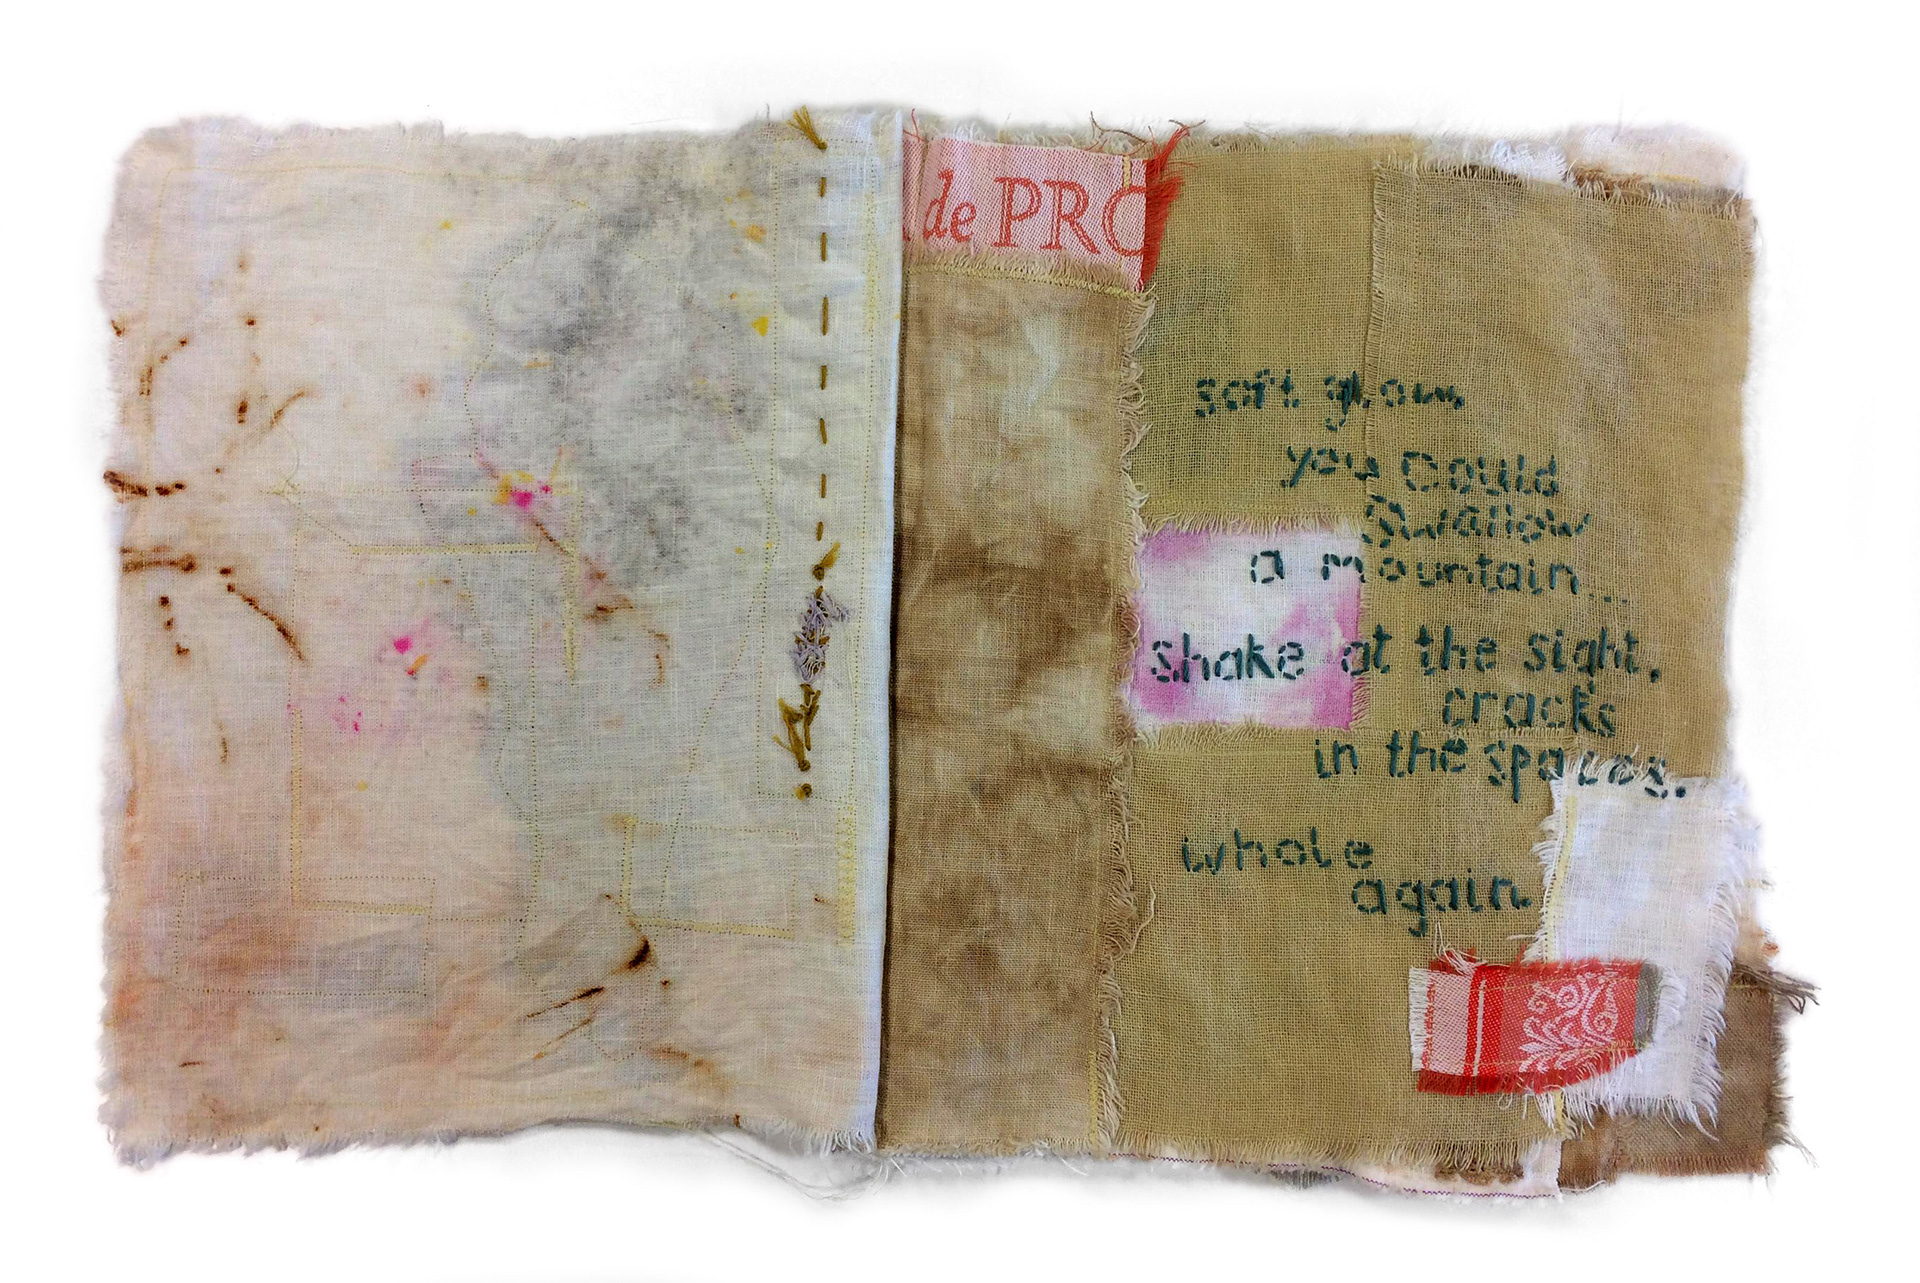 de PRO
soft glow,
you could
swallow
a mountain...
shake at the sight.
cracks
in the spaces.
whole
again.